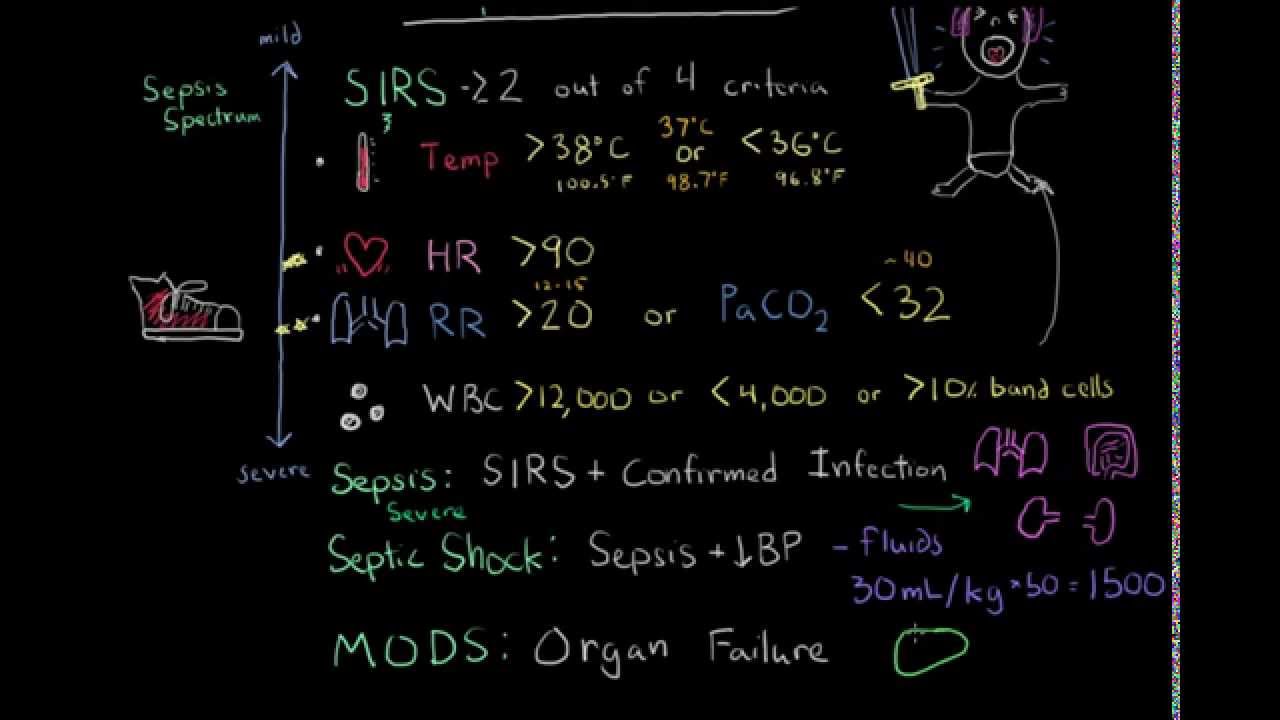 mild
Sepsis
Spectrum
SIRS → ≥2 out of 4 criteria
Temp >38°C 37°C or <36°C
100.5°F 98.7°F 96.8°F
HR >90
12-15 ~40
RR >20 or PaCO2 <32
WBC >12,000 or <4,000 or >10% band cells
severe
Sepsis: SIRS + Confirmed Infection
Severe
Septic Shock: Sepsis + ↓BP - fluids
30mL/kg × 50 = 1500
MODS: Organ Failure